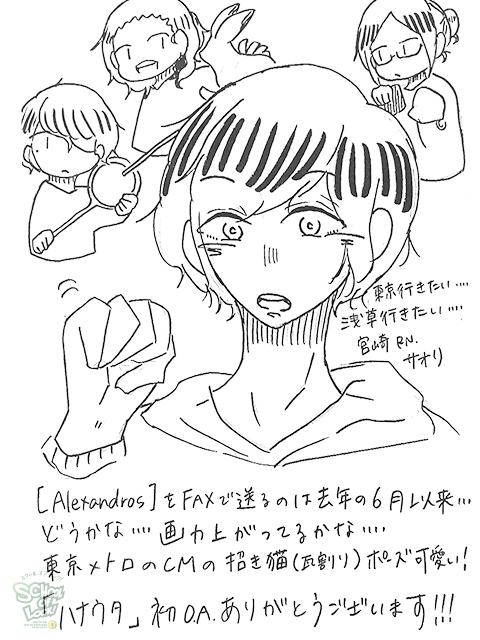 東京行きたい‥‥
浅草行きたい‥‥
宮崎 RN.
サオリ
[Alexandros]をFAXで送るのは去年の6月以来…
どうかな‥‥画力上がってるかな‥‥
東京メトロのCMの招き猫(瓦割り)ポーズ可愛い!
「ハナウタ」初O.A.ありがとうございます!!!
SCHOOL OF LOCK!